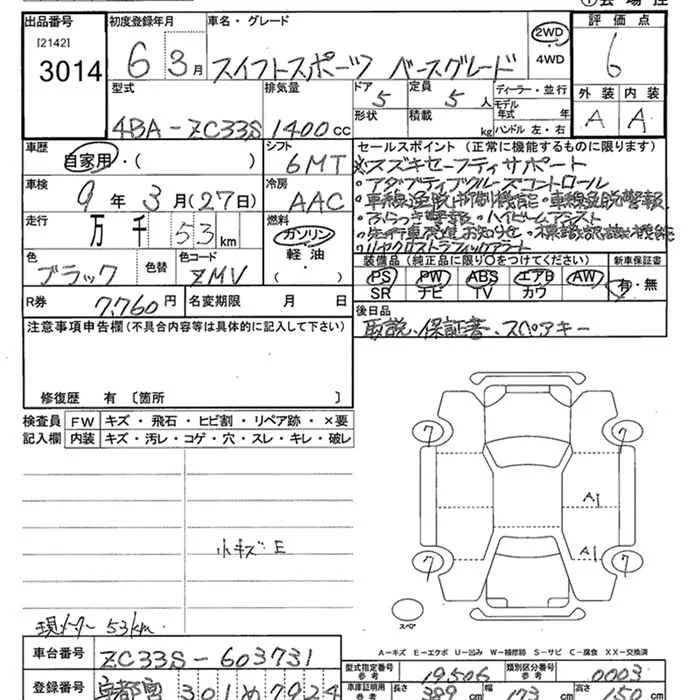 出品番号 初度登録年月 車名・グレード 評価点
[2142] 3014 6 3月 スイフトスポーツ ベースグレード 2WD 4WD 6
型式 排気量 ドア 定員 ディーラー・並行 外装 内装
4BA-ZC33S 1400cc 5 5人 モデル年式 年 A A
形状 積載 kg ハンドル 左・右
車歴 シフト セールスポイント(正常に機能するものに限ります)
自家用・( ) 6MT ※スズキセーフティサポート
車検 冷房 ・アダプティブクルーズコントロール
9年3月(27日) AAC ・車線逸脱抑制機能・車線逸脱警報
走行 燃料 ・ふらつき警報・ハイビームアシスト
万 千 53km ガソリン ・先行車発進お知らせ・標識認識機能
軽油 ・リヤクロストラフィックアラート
色 色替 色コード ( ) 装備品(純正品に限り○をつけてください) 新車保証書
ブラック ZMV PS PW ABS エアB AW 有・無
SR ナビ TV カワ
R券 7,760円 名変期限 月 日 後日品
注意事項申告欄(不具合内容等は具体的に記入して下さい) 取説、保証書、スペアキー
修復歴 有〔箇所 〕
検査員 FW キズ・飛石・ヒビ割・リペア跡・×要
記入欄 内装 キズ・汚レ・コゲ・穴・スレ・キレ・破レ
7 7
A1
小キズ E A1
7 7
現メーター 53km スペア
A-キズ E-エクボ U-凹み W-補修跡 S-サビ C-腐食 XX-交換済
車台番号 ZC33S-603731 型式指定番号 参考 19506 類別区分番号 参考 0003
登録番号 301 め 7924 車庫証明用 参考 長さ 389cm 幅 173cm 高さ 150cm